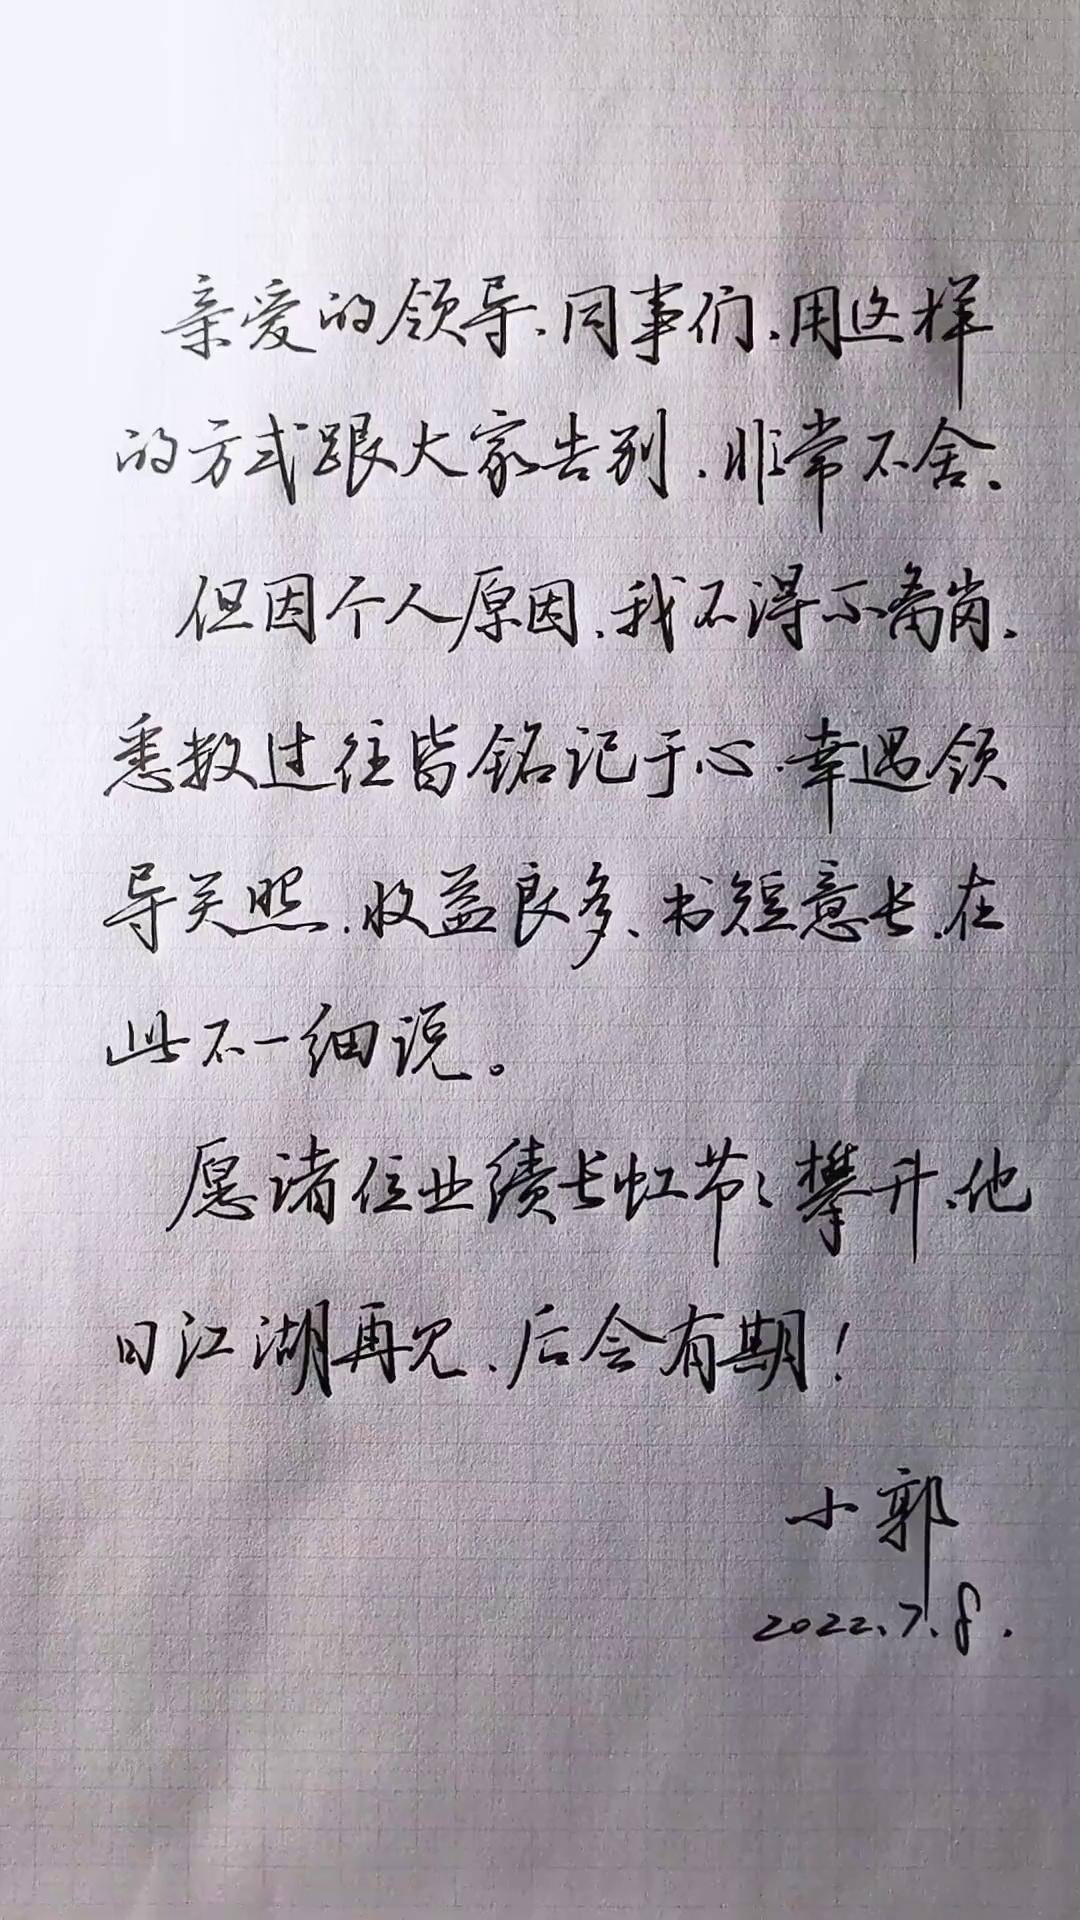 亲爱的领导、同事们,用这样
的方式跟大家告别,非常不舍。
但因个人原因,我不得不离岗,
悉数过往皆铭记于心,幸遇领
导关照,收益良多、书短意长,在
此不一细说。
愿诸位业绩长虹节节攀升,他
日江湖再见,后会有期!
小郭
2022.7.8.